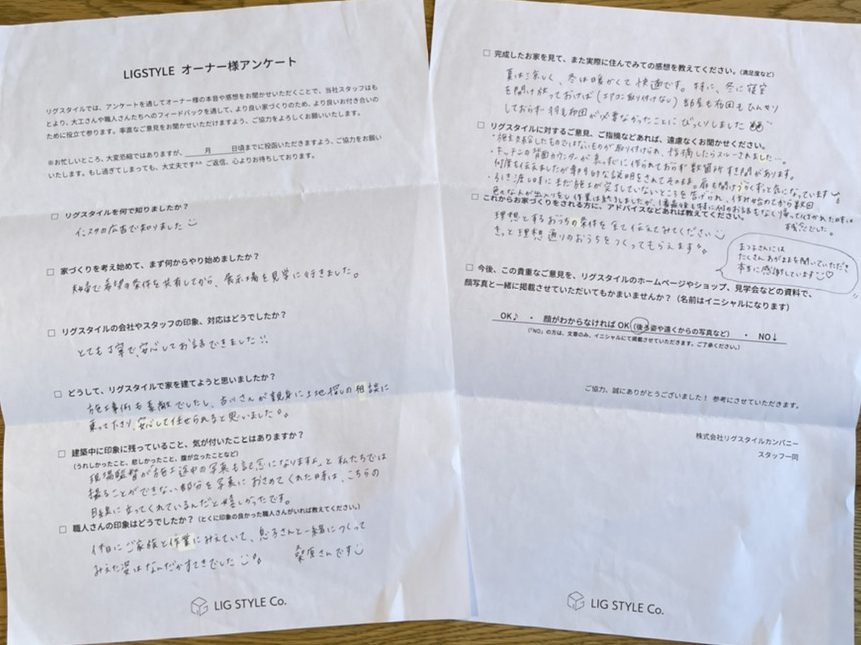 LIGSTYLE オーナー様アンケート
リグスタイルでは、アンケートを通してオーナー様の本音や感想をお聞かせいただくことで、当社スタッフはも
とより、大工さんや職人さんたちへのフィードバックを通して、より良い家づくりのため、より良いお付き合いの
ために役立て参ります。率直なご意見をお聞かせいただけますよう、ご協力をよろしくお願いいたします。
※お忙しいところ、大変恐縮ではありますが、　　月　　日頃までに投函いただきますよう、ご協力をお願い
いたします。もし過ぎてしまっても、大丈夫です^^ ご返信、心よりお待ちしております。
□ リグスタイルを何で知りましたか？
インスタの広告で知りました
□ 家づくりを考え始めて、まず何からやり始めましたか？
夫婦で希望の条件を共有してから、展示場を見学に行きました。
□ リグスタイルの会社やスタッフの印象、対応はどうでしたか？
とても丁寧で、安心してお話できました
□ どうして、リグスタイルで家を建てようと思いましたか？
施工事例も素敵でしたし、古川さんが親身に土地探しの相談に
乗って下さり、安心して任せられると思いました。
□ 建築中に印象に残っていること、気が付いたことはありますか？
（うれしかったこと、悲しかったこと、腹が立ったことなど）
現場監督が「施工途中の写真も記念になりますよ」と私たちでは
撮ることができない部分を写真におさめてくれた時は、こちらの
目線に立ってくれているんだと嬉しかったです。
□ 職人さんの印象はどうでしたか？（とくに印象の良かった職人さんがいれば教えてください。）
休日にご家族と作業にみえていて、息子さんと一緒につくって
みえた姿はなんだかすてきでした　桑原さんです
LIG STYLE Co.
□ 完成したお家を見て、また実際に住んでみての感想を教えてください。（満足度など）
夏は涼しく、冬は暖かくて快適です。特に、冬に寝室
を開け放っておけば（エアコン取り付けない）部屋も布団もひんやり
しておらず羽毛布団が必要なかったことにびっくりしました
□ リグスタイルに対するご意見、ご指摘などあれば、遠慮なくお聞かせください。
ものではないものが取り付けられ、指摘したらスルーされました…。
・キッチンの背面カウンターが真っすぐに作られておらず数箇所すき間があります。
何度も伝えましたが専門的な説明をされてそのまま。扉も開けづらくずっと気になっています
・引き渡し時にまだ施工が完了していないところを告げられ、住み始めてから数回
色々な人が出入りをし作業は終了しましたが、
□ これからお家づくりをされる方に、アドバイスなどあれば教えてください。
残念でした。
理想とするおうちの条件を全て伝えてみてください
きっと理想通りのおうちをつくってもらえます
まつ子さんには
たくさんわがままを聞いていただき
本当に感謝しています
□ 今後、この貴重なご意見を、リグスタイルのホームページやショップ、見学会などの資料で、
顔写真と一緒に掲載させていただいてもかまいませんか？（名前はイニシャルになります）
OK♪　・　顔がわからなければ OK（後ろ姿や遠くからの写真など）　・　NO↓
（「NO」の方は、文章のみ、イニシャルにて掲載させていただきます。ご了承ください。）
ご協力、誠にありがとうございました！ 参考にさせていただきます。
株式会社リグスタイルカンパニー
スタッフ一同
LIG STYLE Co.